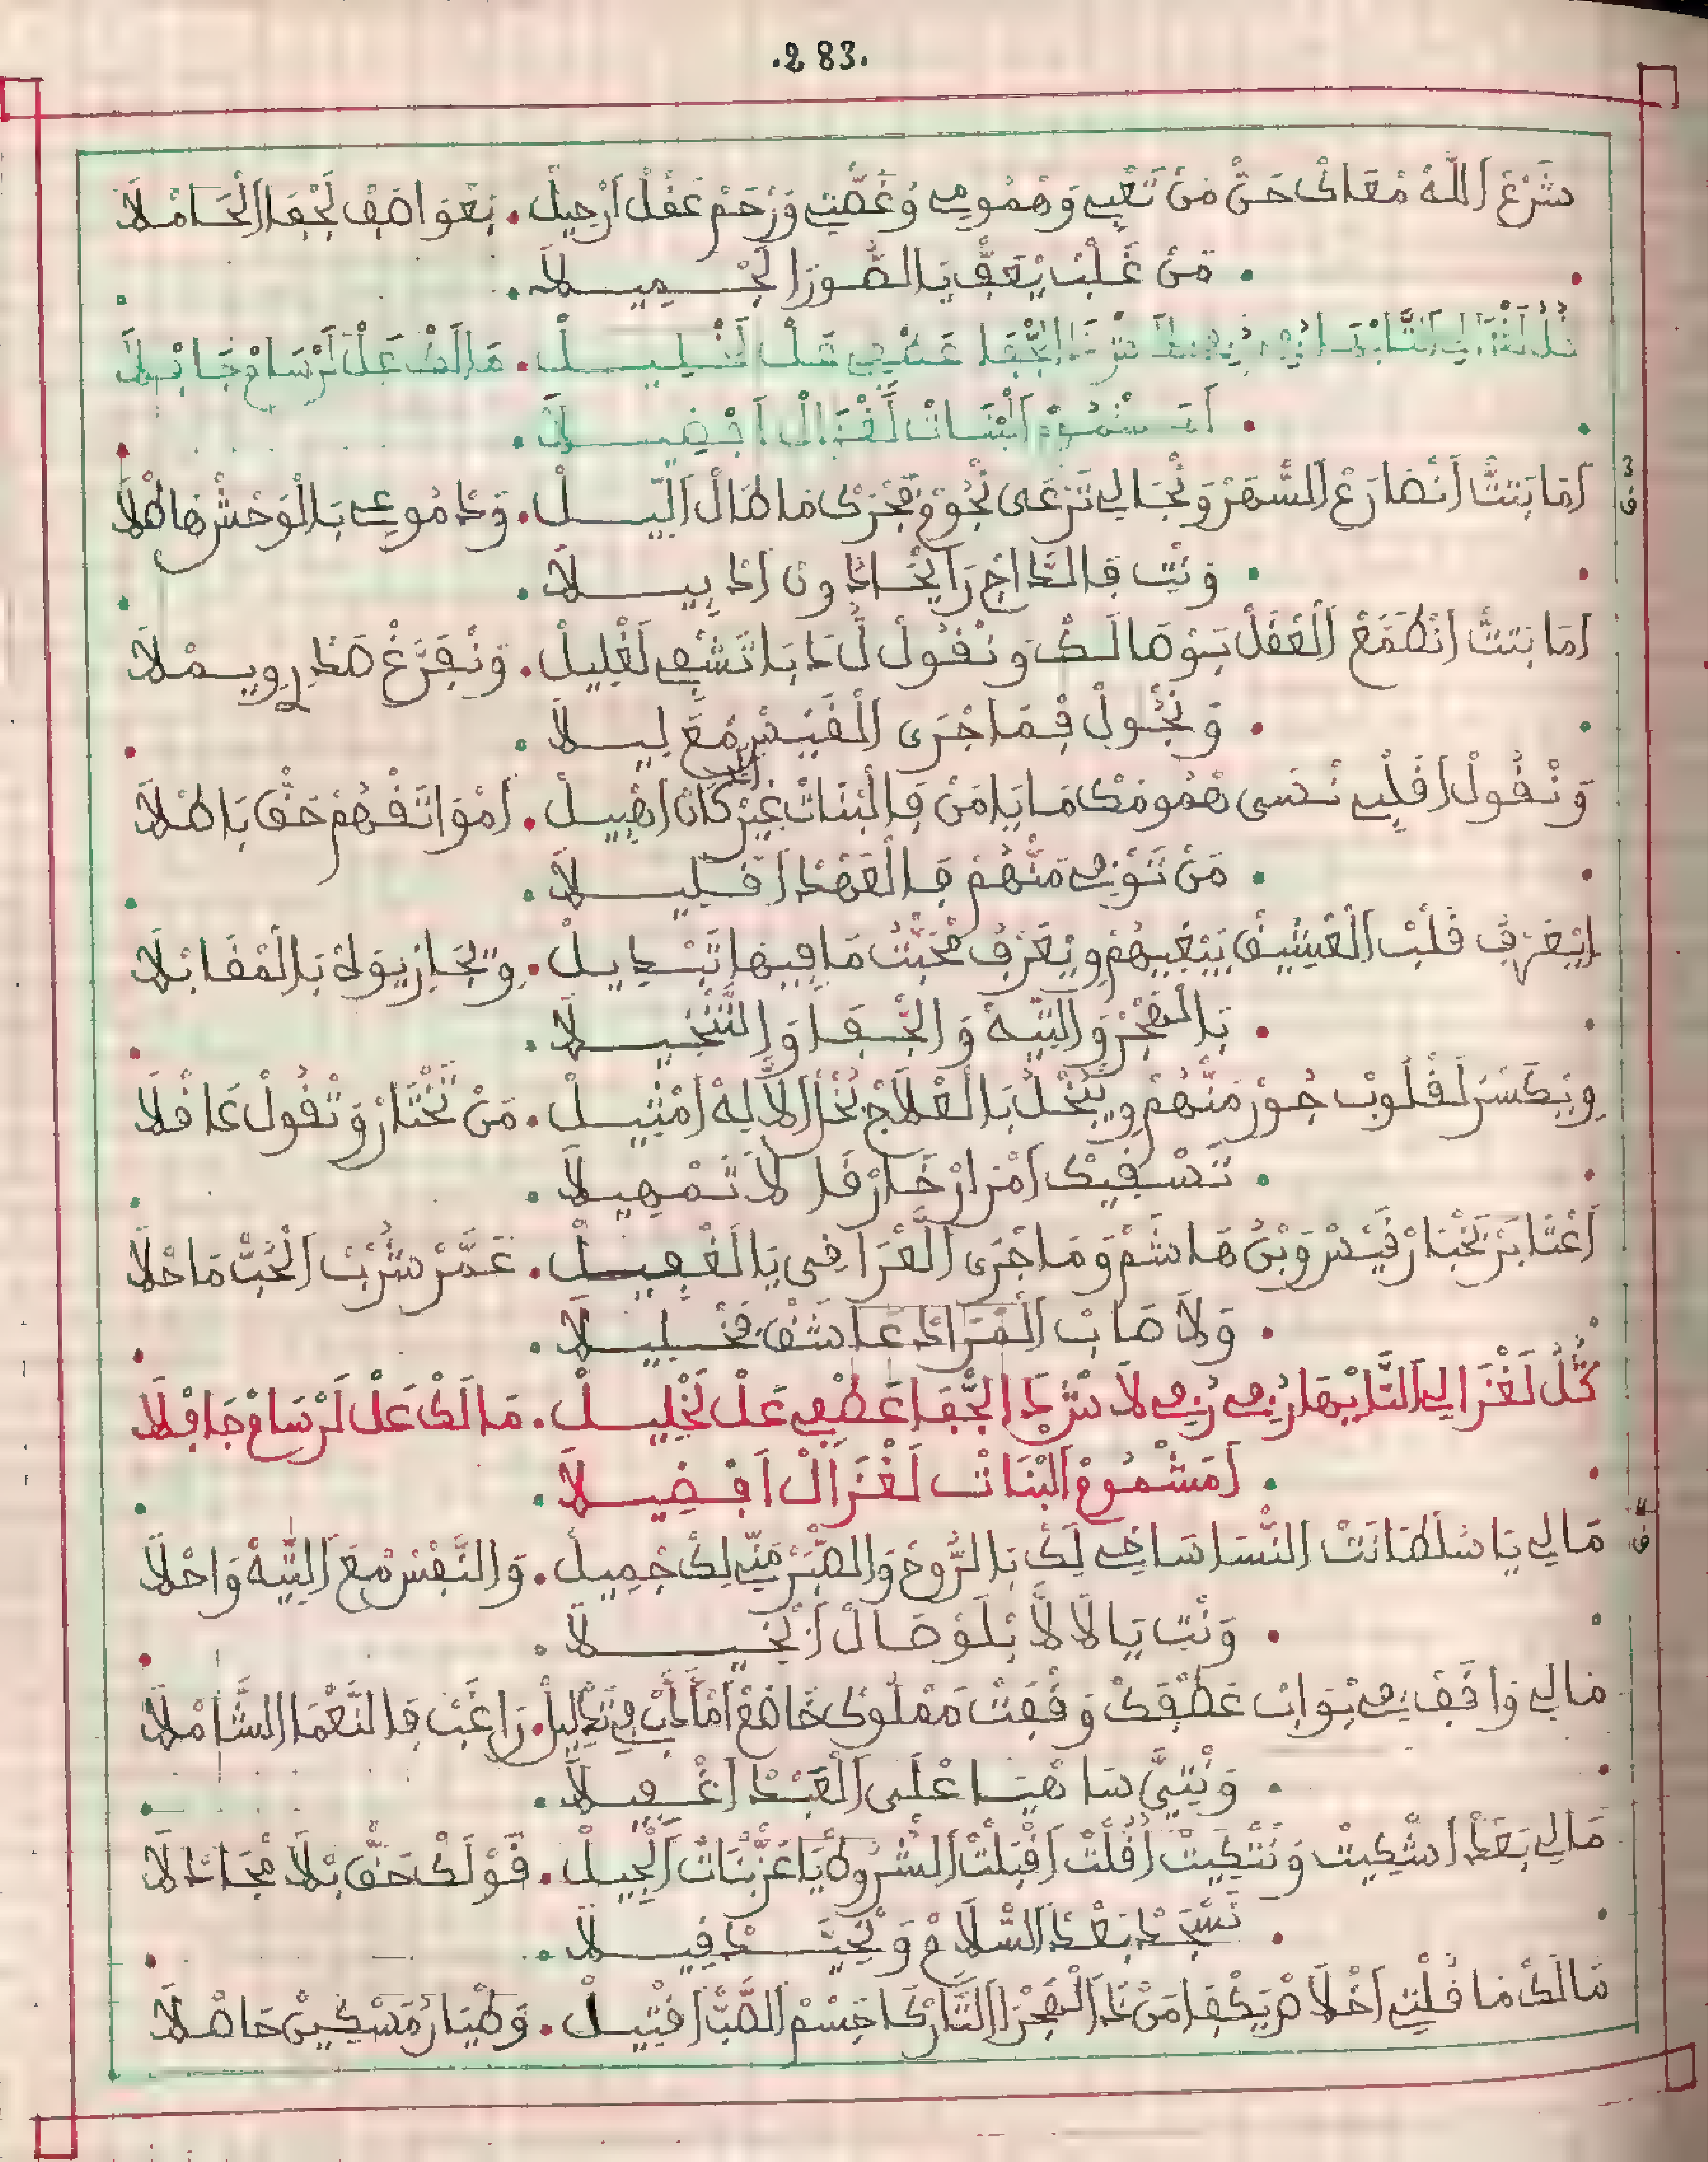 .283.
شَرْعْ اللَّهْ مْعَاكْ حَقّْ مَنْ تَعْبِي وَهْمُومِي وُغُصّْتِي وَرْحَمْ عَقْلْ اَرْحِيلْ . بَعْوَاصَفْ لَجْفَا الْحَامْلَا
. مَنْ غَلْبْ يْعَفّْ يَا الصُّورَا لَجْمِيلَا .
كُلْ لَغْزَالِي التَّايْهَا زُورِي لَا تَزْيَادْ الجّْفَا عَطْفِي عَلْ لَخْلِيلْ . مَالَكْ عَلْ لَرْسَامْ جَافْلَا
. اَمَشْمُومْ اَلْبْنَاتْ لَغْزَالْ اَفْضِيلَا .
3 ف
اَمَا بَتتّْ اَنْصَارَعْ السّْهَرْ وَنْجَالِي تَرْعَى نْجُومْ فَجْرَكْ مَا طَالْ اَلِّيلْ . وَدْمُوعِي بَالْوَحْشْ هَاطْلَا
. وَنْتِ فَالدَّاجْ رَايْخَا دُونْ اَدْبِيلَا .
اَمَا بَتتّْ اَنْطَمَّعْ الْعْقَلْ بَوْصَالَكْ وَنْقُولْ لُ دَابَا تَشْفِي لَغْلِيلْ . وَنْفَرَّغْ صَدْرِي وِيمْلَا
. وَنْجُولْ فِمَا جْرَى اَلْقَيْسْ مْعَ لِيلَا .
وَنْقُولْ اَقَلْبِي نْسَى هْمُومَكْ مَا يَامَنْ فَالْبْنَاتْ غِيرْ كَانْ اَهْبِيلْ . اَمْوَاتَقْهُمْ حَقّْ بَاطْلَا
. مَنْ تَوْفِي مَنْهُمْ فَالْعَهْدْ اَقْلِيلَا .
اِيْعَرْفْ قَلْبْ الْعْشِيقْ يَبْغِيهُمْ وِيْعَرْفُ مْحَبّْتُ مَا فِيهَا تَبْدِيلْ . وِيْجَازِيوَهْ بَالْمْقَابْلَا
. بَالْهْجَرْ وَالتِّيهْ وَالجّْفَا وَالتَّنْخِيلَا .
وِيْكَسْرْ لَقْلُوبْ جُورْ مَنْهُمْ وِيْبْخَلْ بَالْعْلَاجْ نْجْلْ اَلَالِهْ اَمْثِيلْ . مَنْ تَخْتَارْ وَتْقُولْ عَاقْلَا
. تَسْقِيكْ اَمْرَارْ حَارْقَا لَا تَمْهِيلَا .
اَعْتَابَرْ بَخْبَارْ قَيْسْ وَبْنُ هَاشَمْ وَمَا جْرَى اَلْعْرَاقِي يَا لَغْفِيلْ . عَمَّرْ شُرْبْ اَلْحُبّْ مَا حْلَا
. وَلَا صَابْ اَلْمْرَادْ عَاشَقْ فَخْلِيلَا .
كُلْ لَغْزَالِي التَّايْهَا زُورِي زُورِي لَا تَزْيَادْ الجّْفَا عَطْفِي عَلْ لَخْلِيلْ . مَالَكْ عَلْ لَرْسَامْ جَافْلَا
. اَمَشْمُومْ اَلْبْنَاتْ لَغْزَالْ اَفْضِيلَا .
4 ف
مَالِي يَا سَلْطَانَتْ النّْسَا سَاخِي لَكْ بَالرُّوحْ وَالصّْبَرْ مَنِّي لَكْ جْمِيلْ . وَالنَّفْسْ مْعَ التِّيهْ وَاحْلَا
. وَنْتِ يَا لَالَّا بْلَوْصَالْ اَبْخِيلَا .
مَالِي وَاقَفْ فِي بْوَابْ عَطْفَكْ وَقْفَتْ مَمْلُوكْ خَاضَعْ رَاغَبْ فَالنَّعْمَا الشَّامْلَا
. وَنْتِيَّ سَاهْيَا عْلَى الْعَبْدْ اَغْفِيلَا .
مَالِي بَعْدْ اَشْكِيتْ وَنْتْكِيتْ اَقُلْتْ اَقْبَلْتْ الشّْرُوطْ يَا عَزّْ بْنَاتْ اَلْجِيلْ . قَوْلَكْ حَقّْ بْلَا مْجَادْلَا
. نَسْجَدْ بَعْدْ السّْلَامْ وَنْحَيَّدْ قِيلَا .
مَالَكْ مَا قُلْتِ اَخْلَاصْ يَكْفَا مَنْ دَا الْهْجَرْ التَّارْكَا جَسْمْ الصَّبّْ اَفْتِيلْ . وَطْيَارْ مَسْكِينْ حَاصْلَا